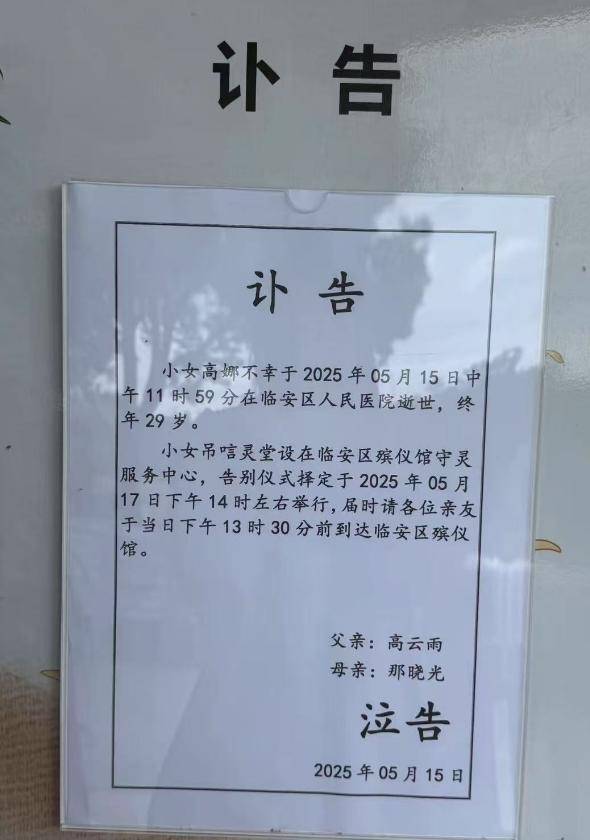 讣 告
讣 告
小女高娜不幸于 2025 年 05 月 15 日中
午 11 时 59 分在临安区人民医院逝世，终
年 29 岁。
小女吊唁灵堂设在临安区殡仪馆守灵
服务中心，告别仪式择定于 2025 年 05 月
17 日下午 14 时左右举行，届时请各位亲友
于当日下午 13 时 30 分前到达临安区殡仪
馆。
父亲：高云雨
母亲：那晓光
泣告
2025 年 05 月 15 日